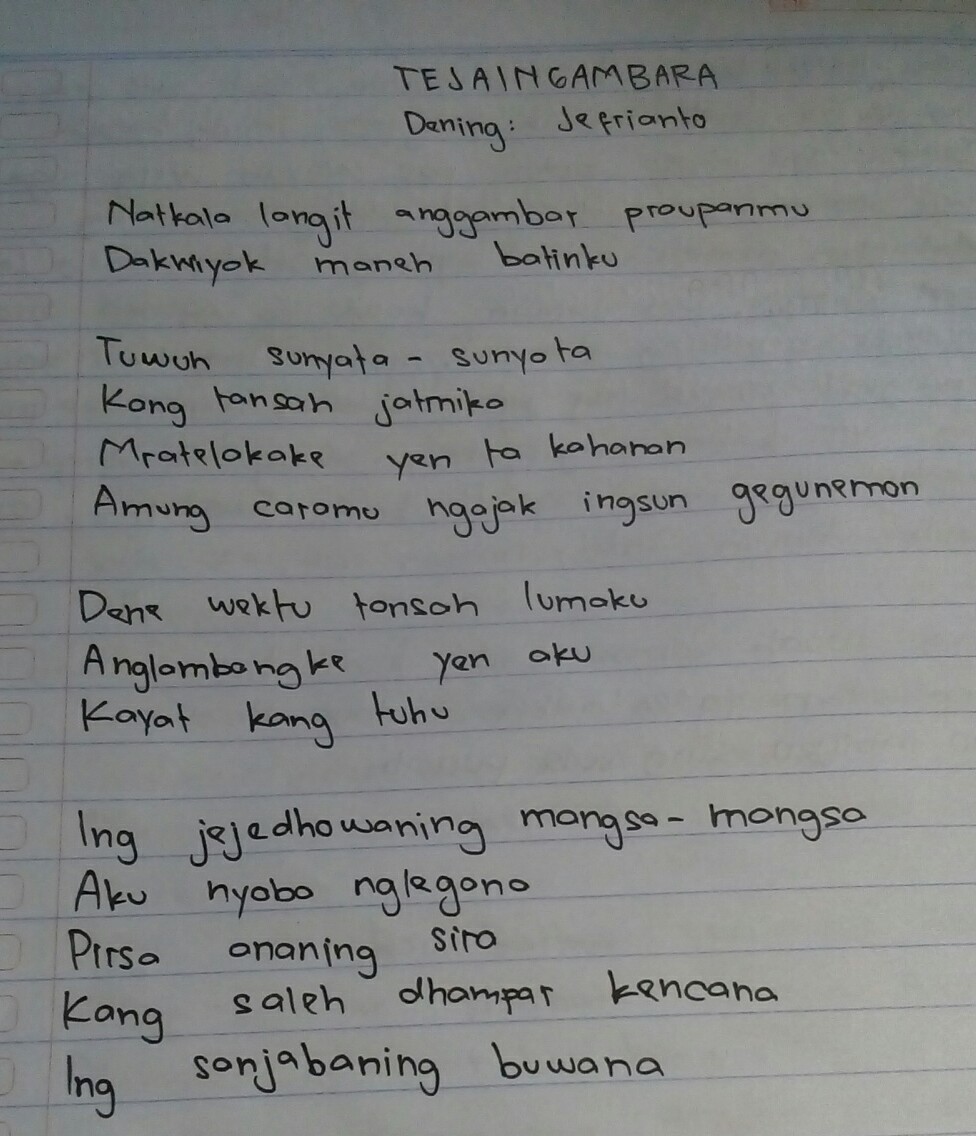 TEJAINGAMBARA
Dening: Jefrianto
Natkala langit anggambar praupanmu
Dakwiyak maneh batinku
Tuwuh sunyata - sunyata
Kang tansah jatmika
Mratelakake yen ta kahanan
Amung caramu ngajak ingsun geguneman
Dene wektu tansah lumaku
Anglambangke yen aku
Kayat kang tuhu
Ing jejedhawaning mangsa - mangsa
Aku nyoba nglegana
Pirsa ananing sira
Kang saleh dhampar kencana
Ing sanjabaning buwana